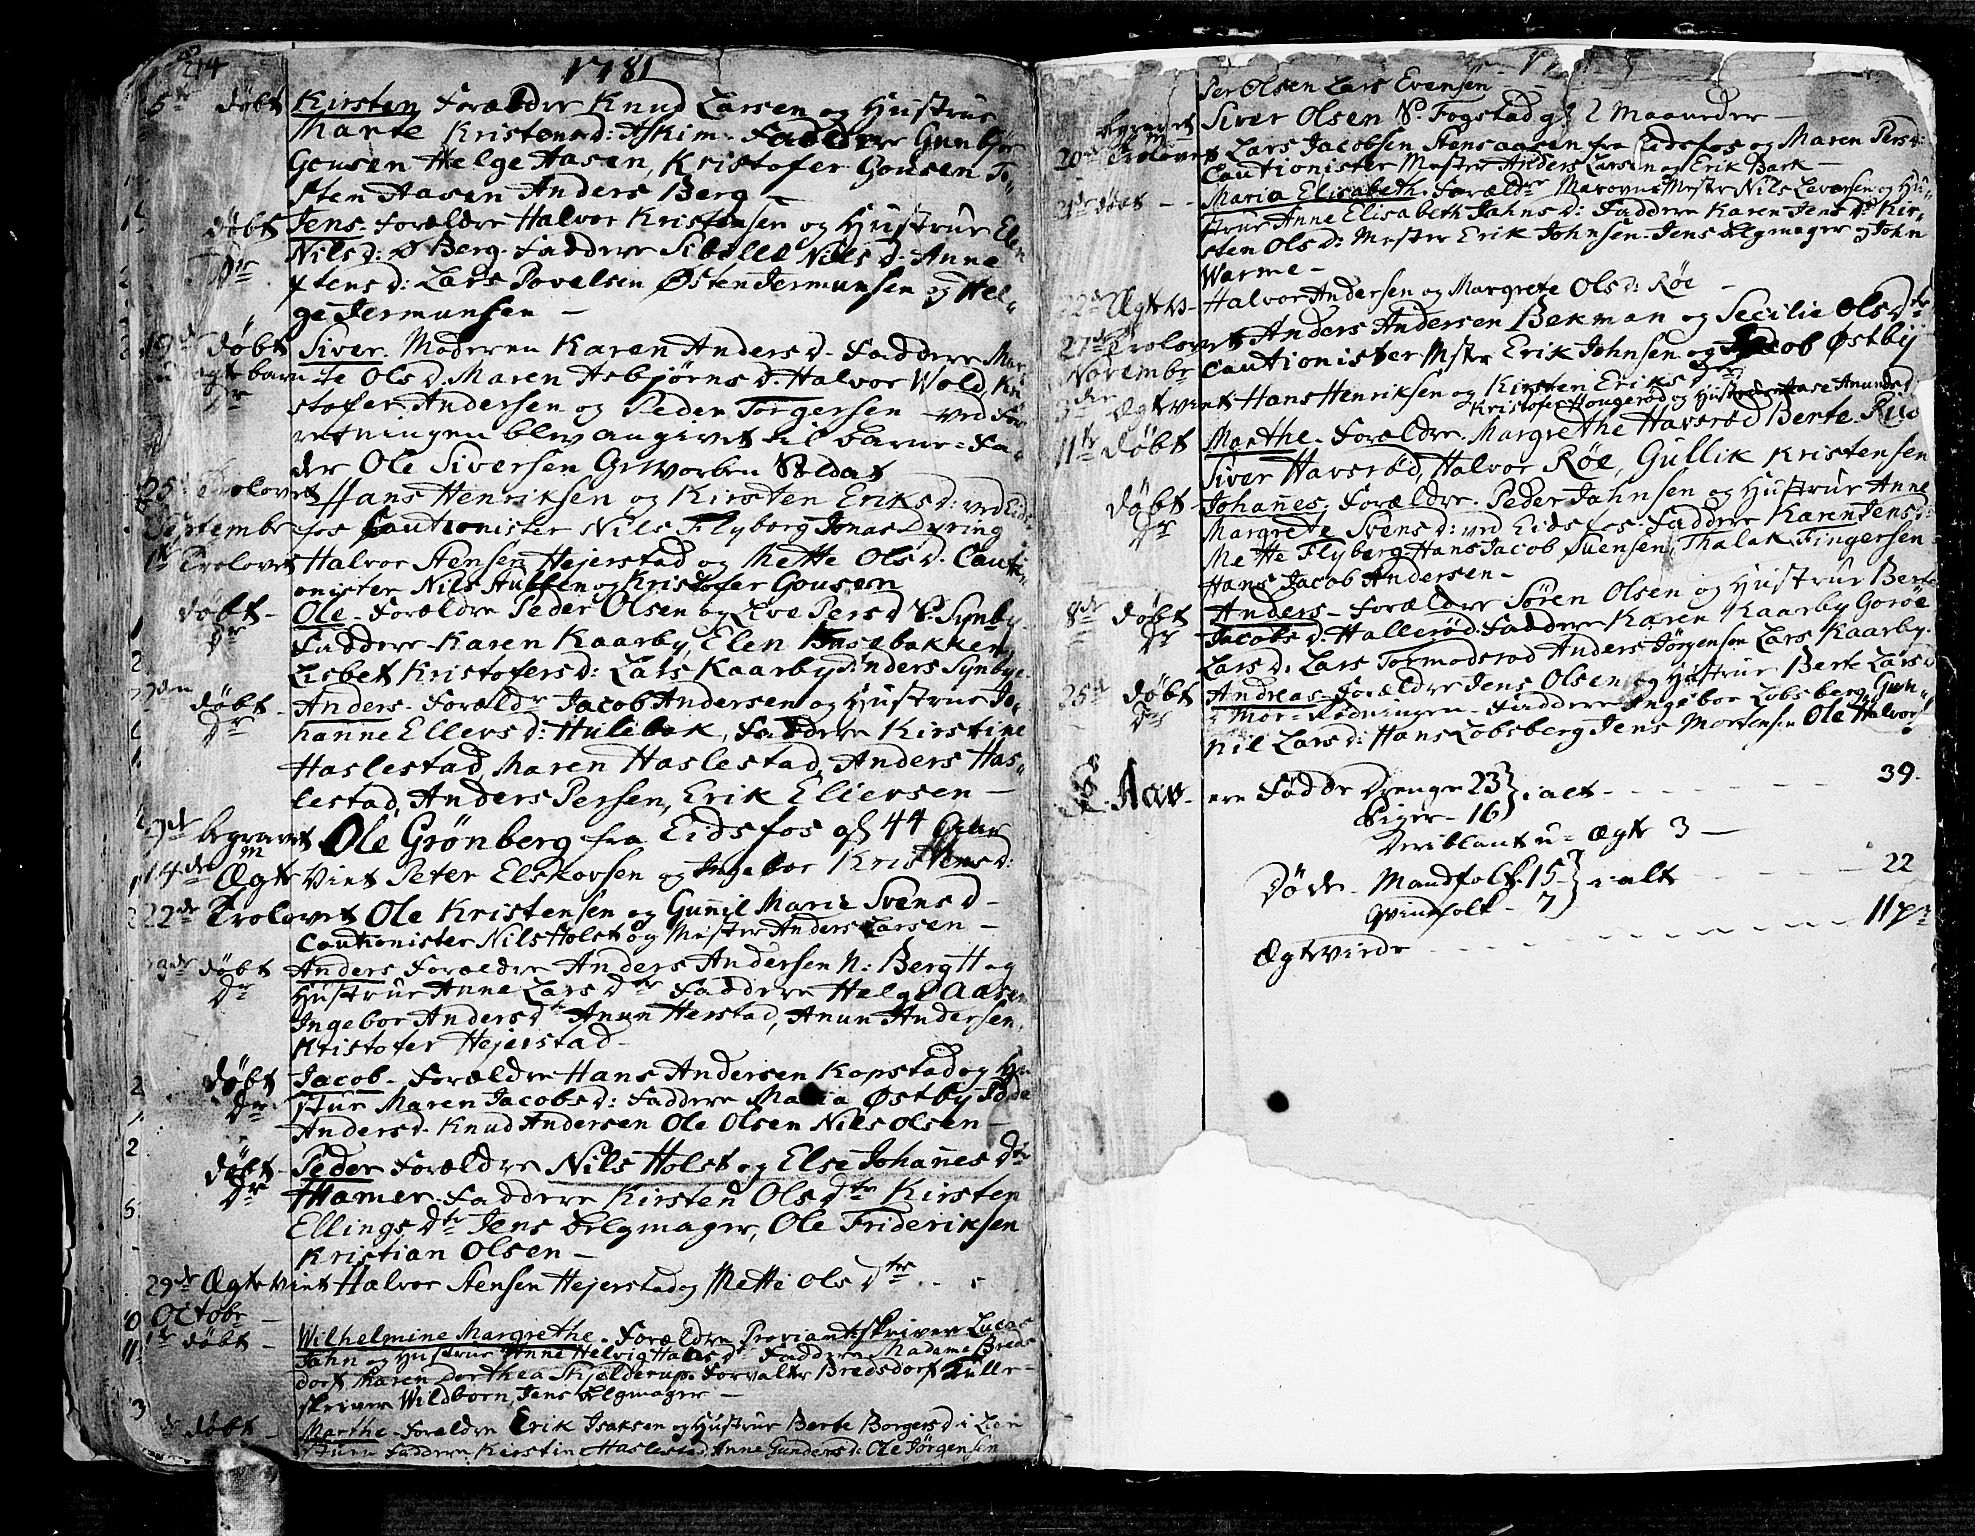 214
1781
5te døbt Kirsten Forældre Knud Larsen og Hustrue
Marte Kristensd: Askim. Faddere Gunbjør
Gousen Helge Hasen, Kristofer Gousen To-
sten Aasen Anders Berg
døbt Jens. Forældre Halvor Kristensen og Hustrue Elen
Nilsd: Ø Berg. Faddere Sibille Nilsd. Anne
Stensd: Lars Povelsen Østen Jermunsen og Hel-
ge Jermunsen —
døbt Siver. Moderen Karen Andersd. Faddere Mar-
u ægte barn te Olsd. Maren Asbjørnsd. Halvor Wold, Kri
stofer Andersen og Peder Torgersen — ved For
retningen blev angivet til Barne-Fa-
der Ole Siversen Gevorben Soldat
25 Trolovet Hans Henriksen og Kirsten Eriksd: ved Eids
Septembr fos Cautionister Nils Flyborg Jonas Dyring
1te Trolovet Halvor Stensen Hejerstad og Mette Olsd. Cauti-
onister Nils Hulbek og Kristofer Gousen
døbt - Ole - Forældre Peder Olsen og Eve Persd S. Synby
Faddere Karen Kaarby, Elen Huusebakken,
Lisbet Kristofersd: Lars Kaarby Anders Synbye
døbt - Anders - Forældr Jacob Andersen og Hustrue Jo-
hanne Ellersd: Hulebak, Faddere Kirstine
Haslestad, Maren Haslestad, Anders Has-
lestad, Anders Persen, Erik Eliersen —
begravet Ole Grønberg fra Eidsfos gl 44 Aar
14de Ægte Viet Peter Elskovsen og Ingebor Kristensd:
22de Trolovet Ole Kristensen og Gunnil Marie Svensd -
Cautionister Nils Holst og Mester Anders Larsen —
døbt Anders Forældre Anders Andersen N: Berg H og
Hustrue Anne Lars Dtr Faddere Helge Aasen
Ingebor Andersdtr Anun Herstad, Anun Andersen,
Kristofer Hejerstad -
døbt Jacob - Forældre Hans Andersen Kopstad og Hu
strue Maren Jacobsd: Faddere Maria Østby
Andersd. Knud Andersen Ole Olsen Nils Olsen —
døbt - Peder Forældre Nils Holst og Else Johannes Dtr
Hamer. Faddere Kirsten Ols Dtr Kirsten
Ellings Dtr Jens Belgmager, Ole Frideriksen
Kristian Olsen —
29de Ægte Viet Halvor Stensen Hejerstad og Mette Ols Dtr
Octobr —
døbt - Wilhelmine Margrethe - Forældre Proviantskriver Lucas
Jahn og Hustrue Anne Helvig Hals Dr Faddere Madame Breds
dorf Karen Dorthea Skjelderup. Forvalter Bredsdorf Kulle-
skriver Wildborn, Jens Belgmager —
døbt - Marthe - Forældre Erik Isaksen og Hustrue Berte Borgersd: i
stuen Faddere Kirstine Haslestad, Anne Gundersd: Ole Jørgensen
Per Olsen Lars Evensen
begravet Siver Olsen N. Fogstad gl 2 Maaneder —
20de Trolovet Lars Jacobsen Stensaasen fra Eidsfos og Maren Persd:
Cautionister Mester Anders Larsen og Erik Bark —
døbt - Maria Elisabeth. Forældr Masovns Mestr Nils Levorsen og Hu-
strue Anne Elisabeth Jahnsd: Faddere Karen Jensd: Kir-
sten Olsd: Mester Erik Johnsen - Jens Belgmager og John
Warme -
Ægte V- Halvor Andersen og Margrete Olsd: Røe
27de Trolovet Anders Andersen Bekman og Secilie Ols Dtr
Novembr Cautionister Mstr Erik Johnsen og Jacob Østby
Ægte viet Hans Henriksen og Kirsten Eriksd
Kristofer Hougerød og Hustrue Aase Anundsd
11te døbt Marthe - Forældre. Margrethe Havsrød Berte Rue
Siver Havsrød, Halvor Røe, Gullik Kristensen
døbt - Johannes. Forældre. Peder Jahnsen og Hustrue Anne
Margrete Svensd: ved Eidsfos. Faddere Karen Jensd:
Mette Flyberg, Hans Jacob Suensen, Thalak Fingersen
Hans Jacob Andersen -
døbt Anders - Forældre Søren Olsen og Hustrue Berte
Jacobsd: Hallerød. Faddere Karen Kaarby Gorøe
Larsd: Lars Tormodsrød Anders Jørgensen Lars Kaarby.
25de døbt Andreas - Forældre Jens Olsen og Hustrue Berte Larsd
i Mor-Rødningen - Faddere Ingebor Lobsberg, Gun-
nil Larsd: Hans Lobsberg Jens Mortensen Ole Halvors
Aar ere Fødde Drenge 23 } i alt - - - 39.
Piger - 16
Deriblant u-Ægte 3 —
Døde - Mandfolk 15 } i alt - - - 22
Qvindfolk - 7
Ægteviede - - - 11 pr